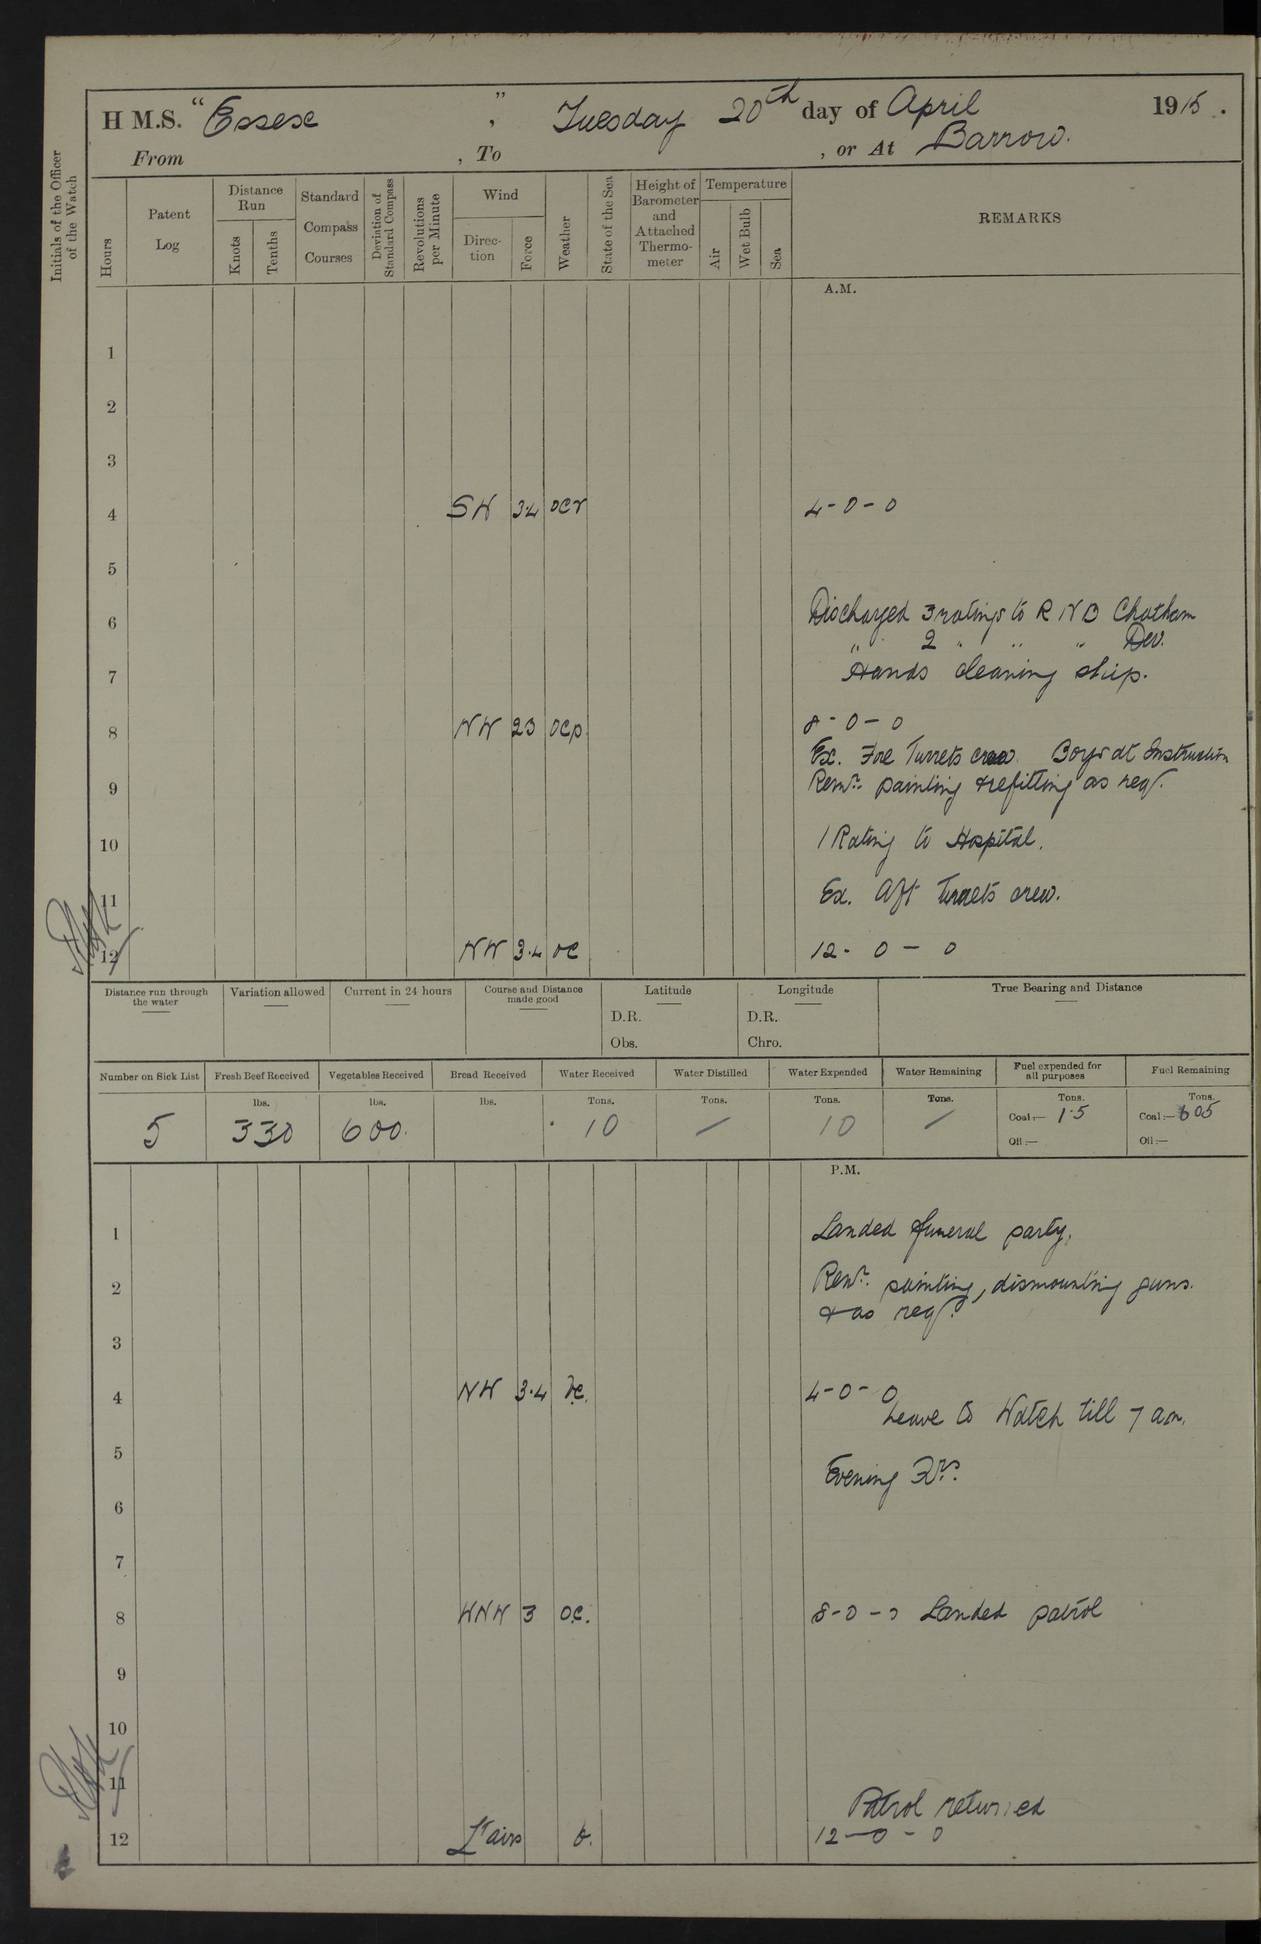 H M.S. "Essex", Tuesday 20th day of April 1915.
From , To , or At Barrow.
Initials of the Officer of the Watch
Hours
Patent Log
Distance Run
Knots
Tenths
Standard Compass Courses
Deviation of Standard Compass
Revolutions per Minute
Wind
Direction
Force
Weather
State of the Sea
Height of Barometer and Attached Thermometer
Temperature
Air
Wet Bulb
Sea
REMARKS
A.M.
1
2
3
4 SW 3.4 ocr 4-0-0
5
6 Discharged 3 ratings to R N B Chatham
" 2 " " " Dev.
7 Hands cleaning ship.
8 NW 23 ocp 8-0-0
Ex. Fore Turrets crew. Boys at Instruction
9 Remr. painting & refitting as req.
10 1 Rating to Hospital.
11 Ex. Aft Turrets crew.
12 NW 3.4 oc 12-0-0
Distance run through the water
Variation allowed
Current in 24 hours
Course and Distance made good
Latitude
D.R.
Obs.
Longitude
D.R.
Chro.
True Bearing and Distance
Number on Sick List
Fresh Beef Received
Vegetables Received
Bread Received
Water Received
Water Distilled
Water Expended
Water Remaining
Fuel expended for all purposes
Fuel Remaining
lbs. lbs. lbs. Tons. Tons. Tons. Tons. Tons. Tons.
5 330 600. 10 / 10 / Coal:— 15 Coal:— 605
Oil:— Oil:—
P.M.
1 Landed funeral party.
2 Remr. painting, dismounting guns.
& as req.
3
4 NW 3.4 bc. 4-0-0
Leave to Watch till 7 am.
5
Evening Qrs.
6
7
8 WNW 3 oc. 8-0-0 Landed patrol
9
10
11
Patrol returned
12 Lt airs b. 12-0-0